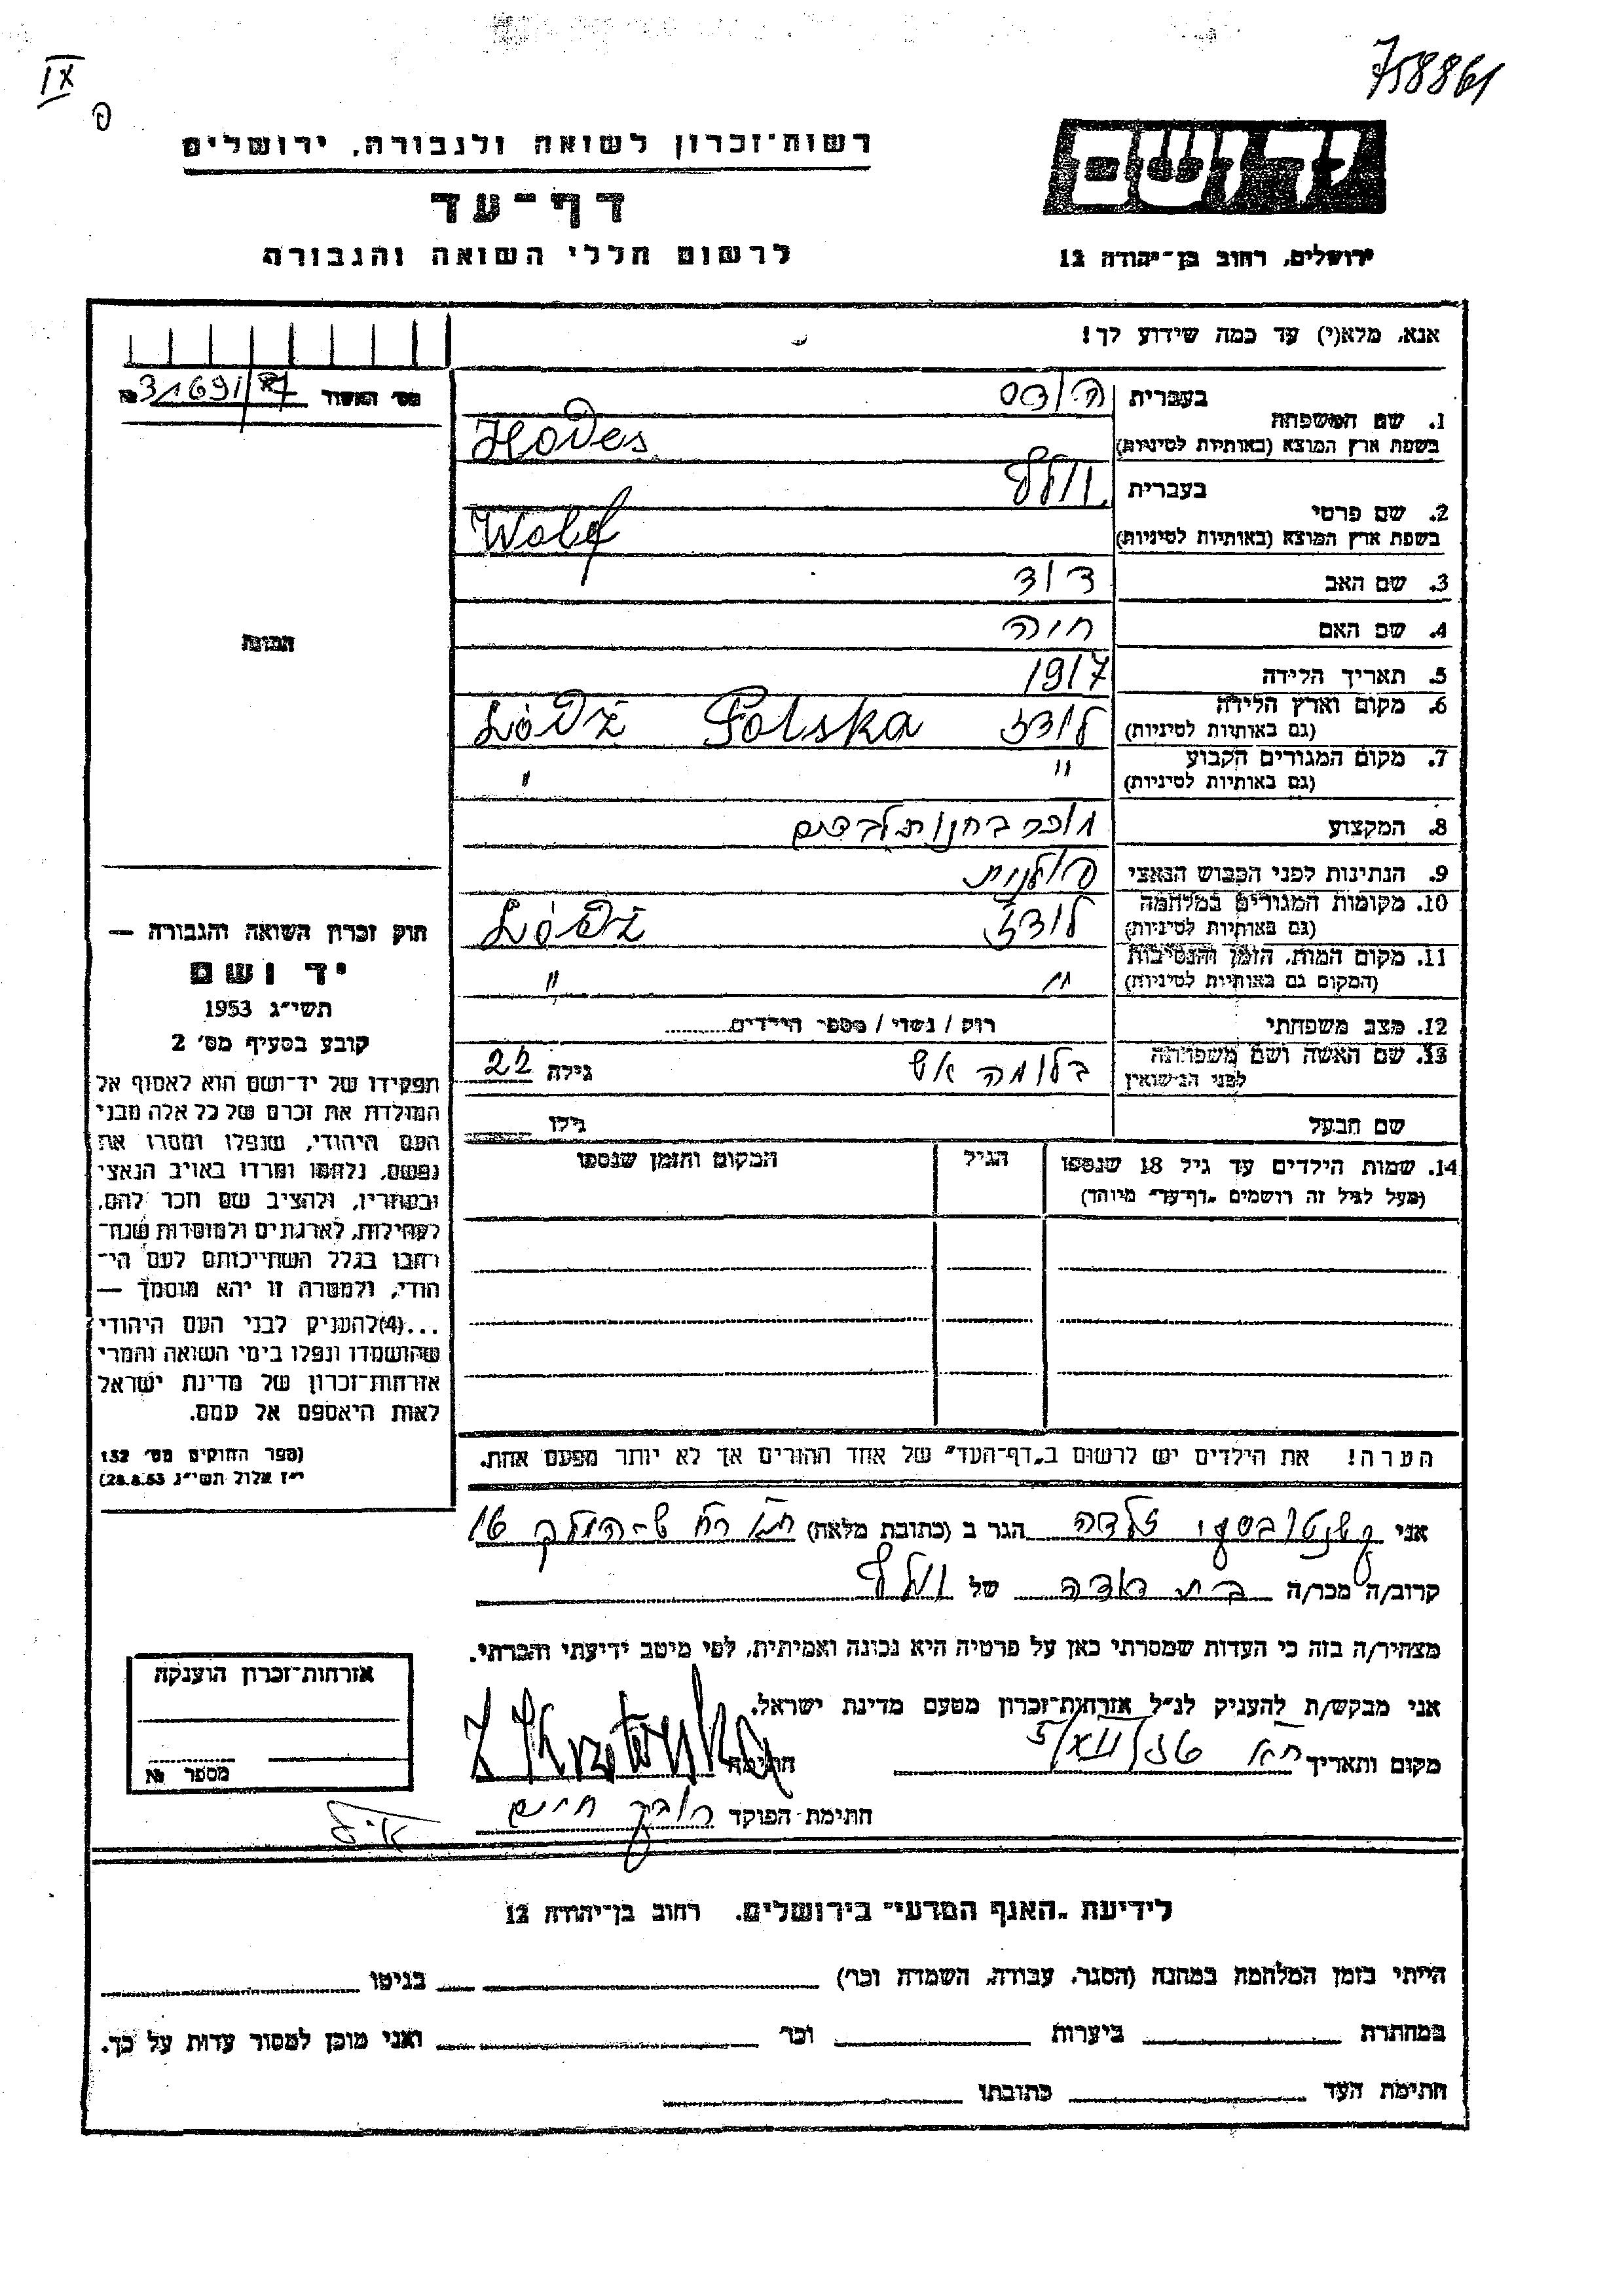 758861
IX
רשות־זכרון לשואה ולגבורה, ירושלים
דף־עד
לרשום חללי השואה והגבורה
יד ושם
ירושלים, רחוב בן־יהודה 12
אנא, מלא(י) עד כמה שידוע לך!
מס׳ האשור 31691/87 №
1. שם המשפחה בעברית הודס
בשפת ארץ המוצא (באותיות לטיניות) Hodes
2. שם פרטי בעברית וולף
בשפת ארץ המוצא (באותיות לטיניות) Wolf
3. שם האב דוד
4. שם האם חיה
5. תאריך הלידה 1917
6. מקום וארץ הלידה (גם באותיות לטיניות) לודז Polska Łódż
7. מקום המגורים הקבוע (גם באותיות לטיניות) " "
8. המקצוע מוכר בחנות לבדים
9. הנתינות לפני הכבוש הנאצי פולנית
10. מקומות המגורים במלחמה (גם באותיות לטיניות) לודז Łódż
11. מקום המות, הזמן והנסיבות (המקום גם באותיות לטיניות) " "
12. מצב משפחתי רוק / נשוי / מספר הילדים
13. שם האשה ושם משפחתה לפני הנישואין בלומה אש גילה 22
שם הבעל גילו
14. שמות הילדים עד גיל 18 שנספו הגיל המקום והזמן שנספו
(מעל לגיל זה רושמים "דף־עד" מיוחד)
התמונה
חוק זכרון השואה והגבורה —
יד ושם
תשי״ג 1953
קובע בסעיף מס׳ 2
תפקידו של יד־ושם הוא לאסוף אל
המולדת את זכרם של כל אלה מבני
העם היהודי, שנפלו ומסרו את
נפשם, נלחמו ומרדו באויב הנאצי
ובעוזריו, ולהציב שם וזכר להם,
לקהילות, לארגונים ולמוסדות שנח־
רבו בגלל השתייכותם לעם הי־
הודי, ולמטרה זו יהא מוסמך —
...(4)להעניק לבני העם היהודי
שהושמדו ונפלו בימי השואה והמרי
אזרחות־זכרון של מדינת ישראל
לאות היאספם אל עמם.
(ספר החוקים מס׳ 132
י״ז אלול תשי״ג 28.8.53)
הערה! את הילדים יש לרשום ב"דף־העד" של אחד ההורים אך לא יותר מפעם אחת.
אני זלדה הגר ב (כתובת מלאה) 16
קרוב/ה מכר/ה בת דודה של וולף
מצהיר/ה בזה כי העדות שמסרתי כאן על פרטיה היא נכונה ואמיתית, לפי מיטב ידיעתי והכרתי.
אני מבקש/ת להעניק לנ״ל אזרחות־זכרון מטעם מדינת ישראל.
מקום ותאריך חתימה
חתימת הפוקד חיים
אזרחות־זכרון הוענקה
מספר №
לידיעת "האגף המדעי" בירושלים. רחוב בן־יהודה 12
הייתי בזמן המלחמה במחנה (הסגר, עבודה, השמדה וכר׳) בגיטו
במחתרת ביערות וכר׳ ואני מוכן למסור עדות על כך.
חתימת העד כתובתו